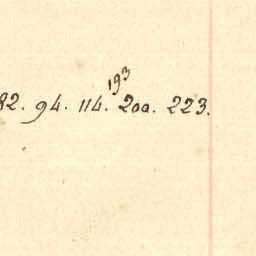 193
82. 94. 114. 200. 223.